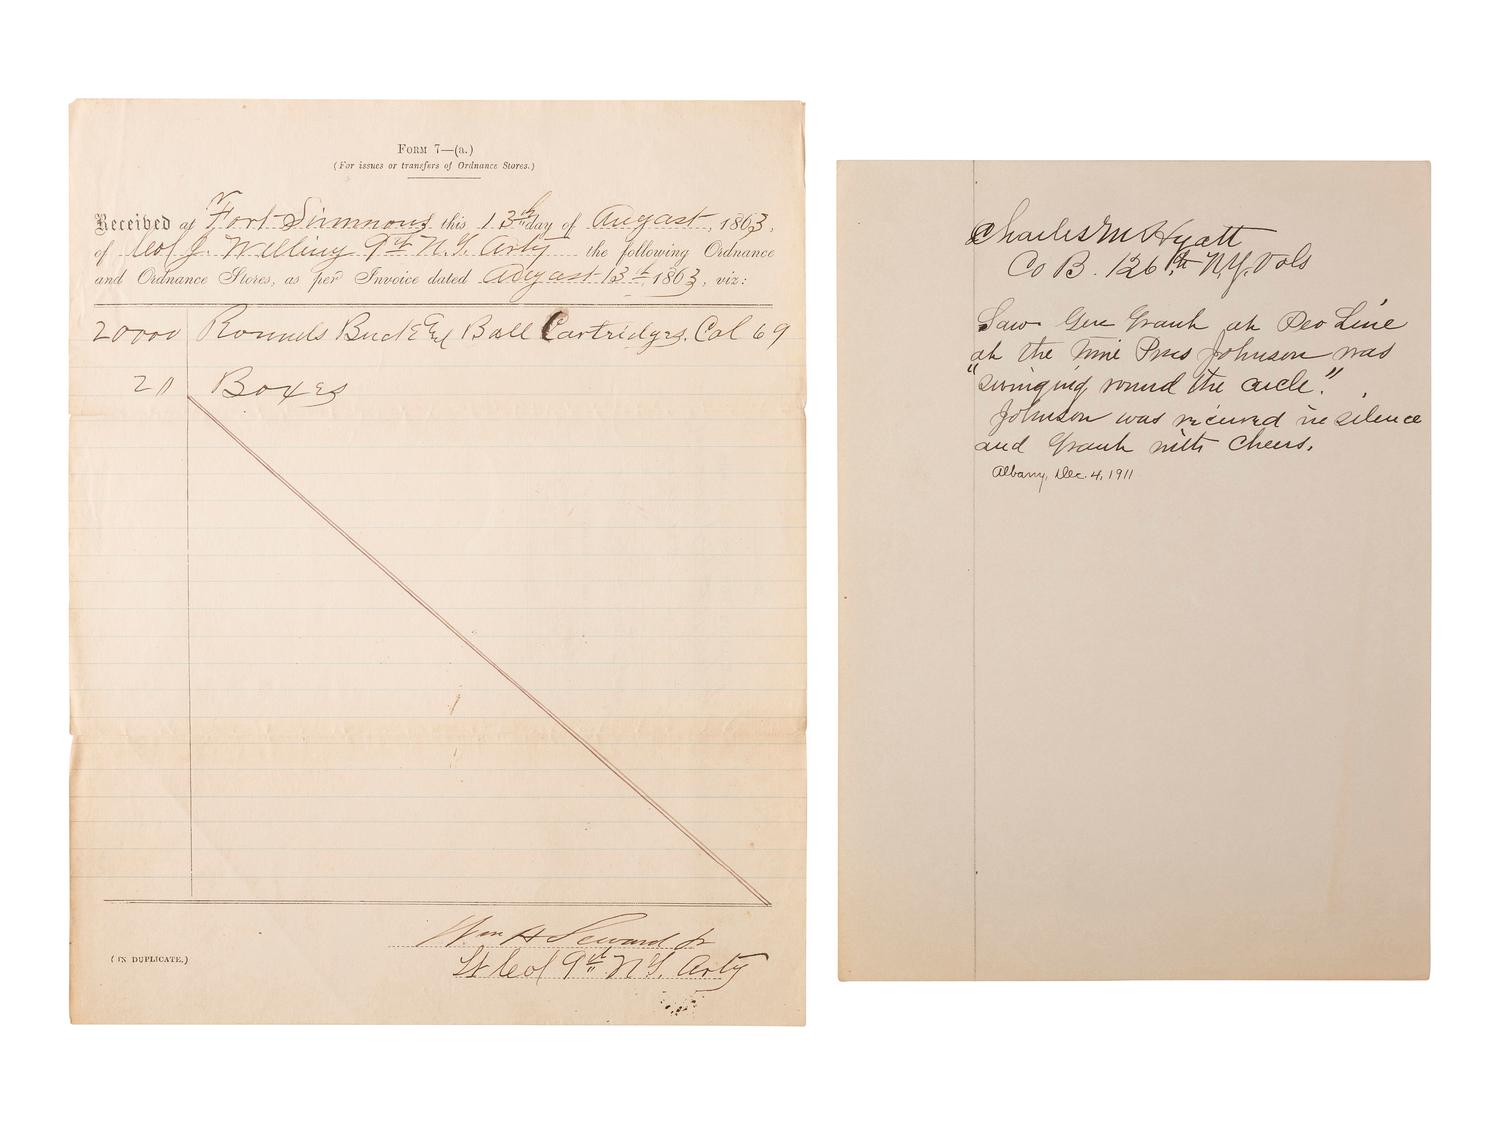 Form 7—(a.)
(For issues or transfers of Ordnance Stores.)
Received at Fort Simmons this 13th day of August, 1863,
of Col J. Welling 9th N.Y. Arty the following Ordnance
and Ordnance Stores, as per Invoice dated August 13th, 1863, viz:
20000 Rounds Buck & Ball Cartridges. Cal 69
20 Boxes
Wm H Seward Jr
Lt Col 9th N.Y. Arty
(IN DUPLICATE.)
Charles M Hyatt
Co B. 126th N.Y. Vols
Saw Gen Grant at Deo Line
at the time Pres Johnson was
"swinging round the circle".
Johnson was received in silence
and Grant with cheers.
Albany, Dec. 4, 1911